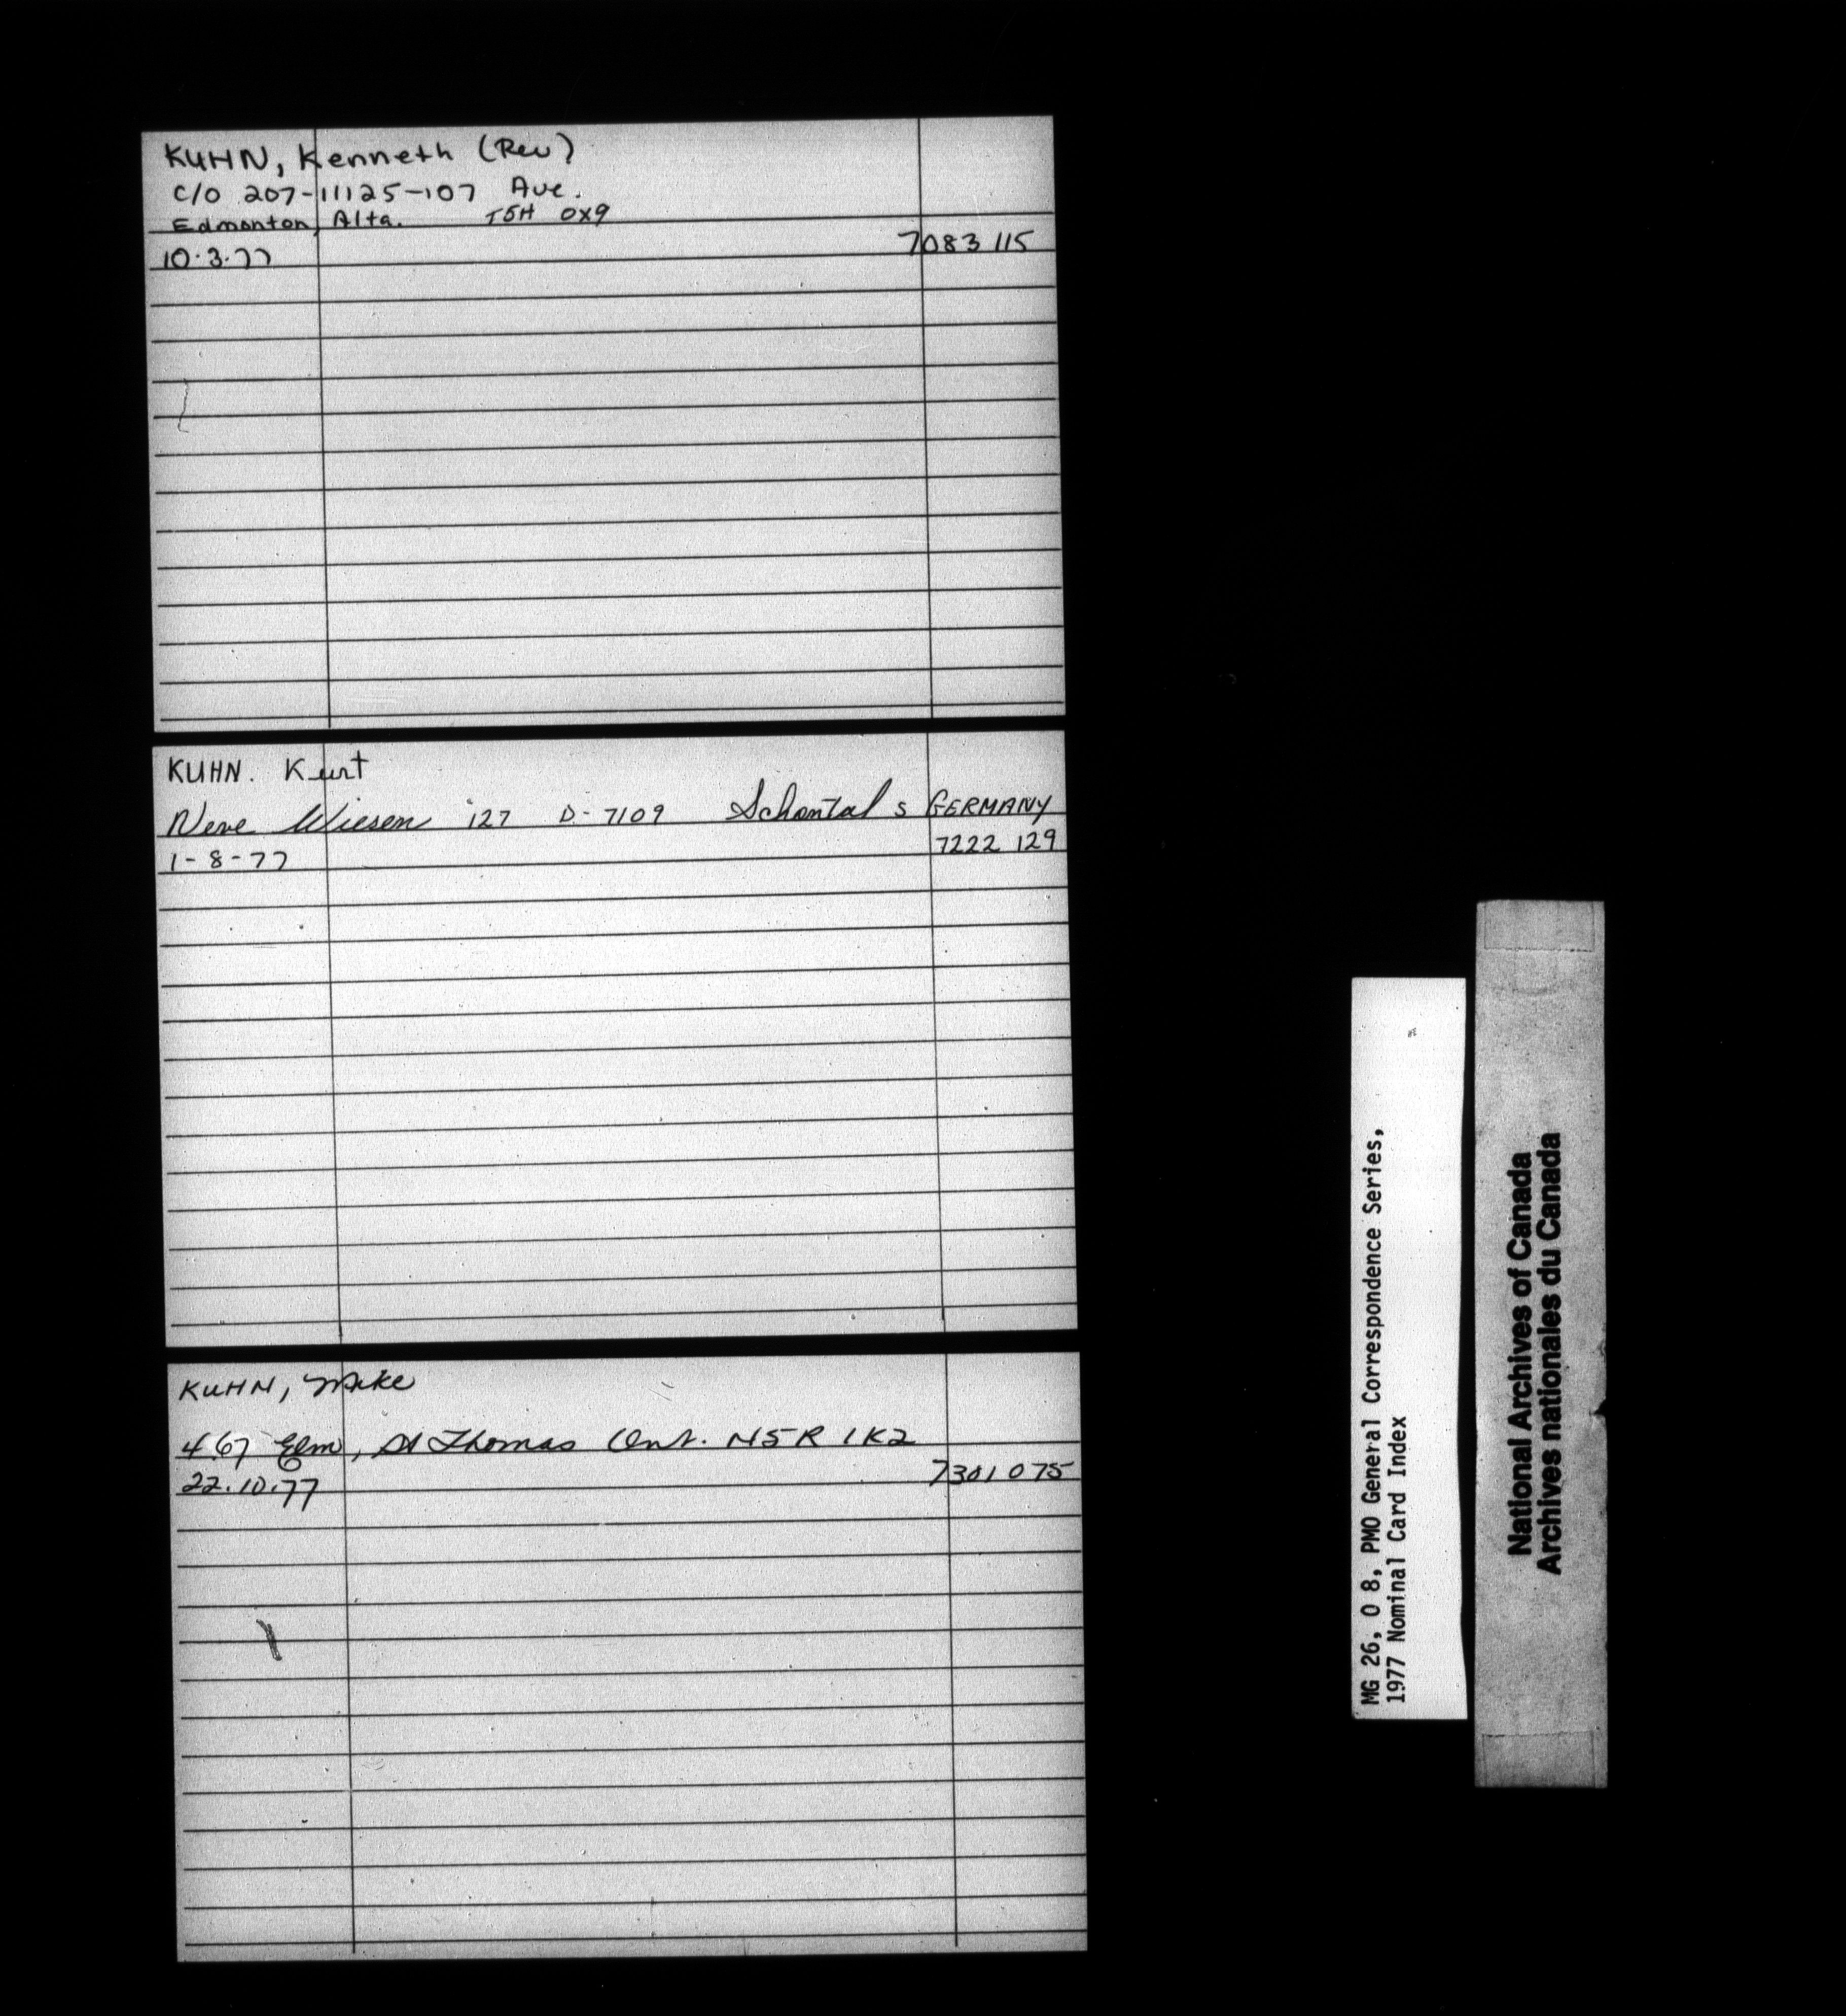 KUHN, Kenneth (Rev)
C/O 207-11125-107 Ave.
Edmonton, Alta. T5H 0X9
10.3.77 7083 115
KUHN. Kurt
Neve Wiesen 127 D-7109 Schontal 5 GERMANY
1-8-77 7222 129
KUHN, Mike
467 Elm, St Thomas Ont. N5R 1K2
22.10.77 7301 075
MG 26, O 8, PMO General Correspondence Series,
1977 Nominal Card Index
National Archives of Canada
Archives nationales du Canada